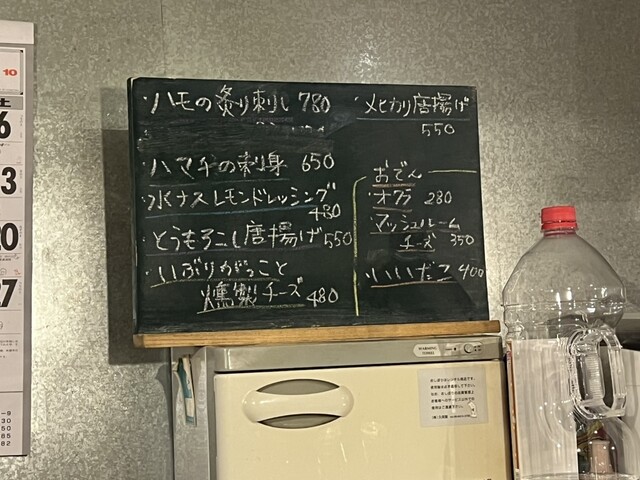 10
土
6
13
20
27
・ハモの炙り刺し 780
・ハマチの刺身 650
・水ナスレモンドレッシング
480
・とうもろこし唐揚げ 550
・いぶりがっこと
燻製チーズ 480
・メヒカリ唐揚げ
550
おでん
・オクラ 280
・マッシュルーム
チーズ 350
・いいだこ 400